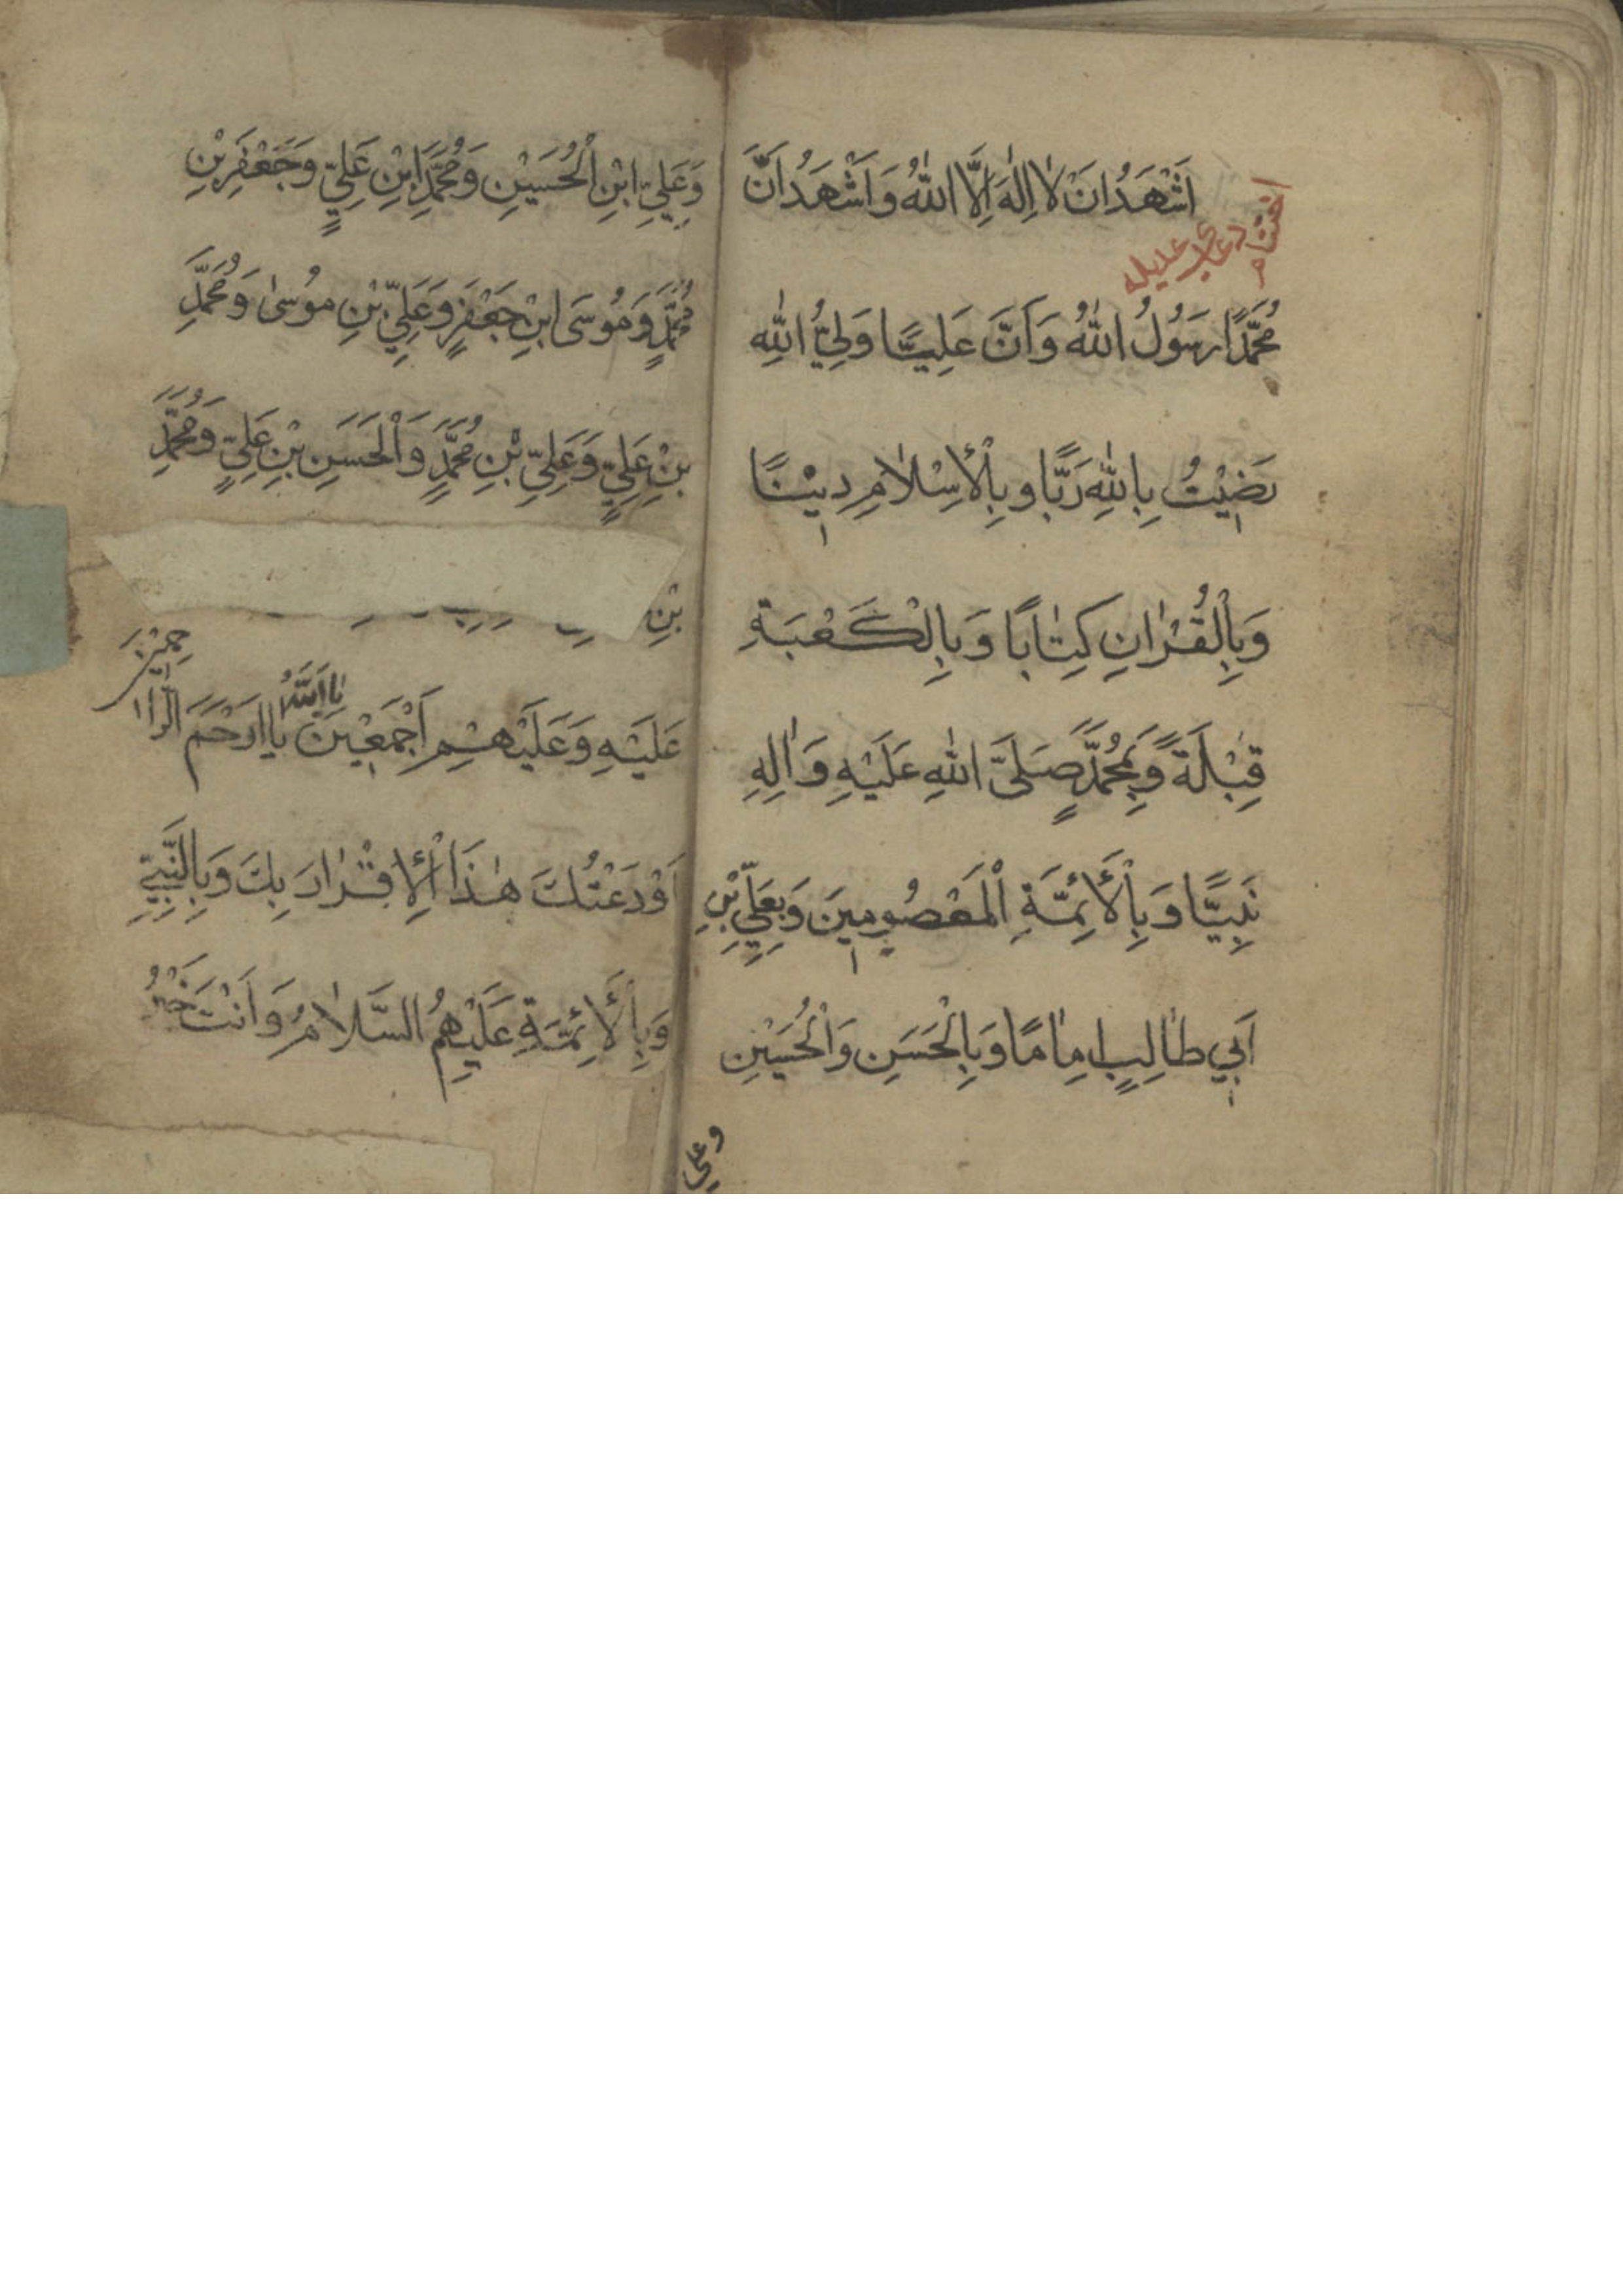 اَشْهَدُ اَنْ لٰا اِلٰهَ اِلَّا اللّٰهُ وَ اَشْهَدُ اَنَّ
اختتام
دعای عدیله
مُحَمَّدًا رَسُولُ اللّٰهُ وَ اَنَّ عَلِيًّا وَلِيُّ اللّٰهِ
رَضٖيْتُ بِاللّٰهِ رَبًّا وَ بِالْاِسْلٰامِ دٖيْنًا
وَ بِالْقُرْاٰنِ كِتٰابًا وَ بِالْكَعْبَةِ
قِبْلَةً وَ بِمُحَمَّدٍ صَلَّى اللّٰهِ عَلَيْهِ وَ اٰلِهِ
نَبِيًّا وَ بِالْأَئِمَّةِ الْمَعْصُومٖينَ وَ بِعَلِيِّ بْنِ
اَبٖي طٰالِبٍ اِمٰامًا وَ بِالْحَسَنِ وَ الْحُسَيْنِ
وعلي
وَ عَلِيِّ ابْنِ الْحُسَيْنِ وَ مُحَمَّدِ ابْنِ عَلِيٍّ وَ جَعْفَرِ بْنِ
مُحَمَّدٍ وَ مُوسَى ابْنِ جَعْفَرٍ وَ عَلِيِّ بْنِ مُوسٰى وَ مُحَمَّدِ
بْنِ عَلِيٍّ وَ عَلِيِّ بْنِ مُحَمَّدٍ وَ الْحَسَنِ بْنِ عَلِيٍّ وَ مُحَمَّدِ
بْنِ
عَلَيْهِ وَ عَلَيْهِمْ اَجْمَعٖيْنَ يٰا اَللّٰهُ يٰا اَرْحَمَ الرّٰاحِمٖيْنَ
اَوْدَعْتُكَ هٰذَا الْاِقْرٰارَ بِكَ وَ بِالنَّبِيِّ
وَ بِالْأَئِمَّةِ عَلَيْهِمُ السَّلٰامُ وَ اَنْتَ خَيْرُ